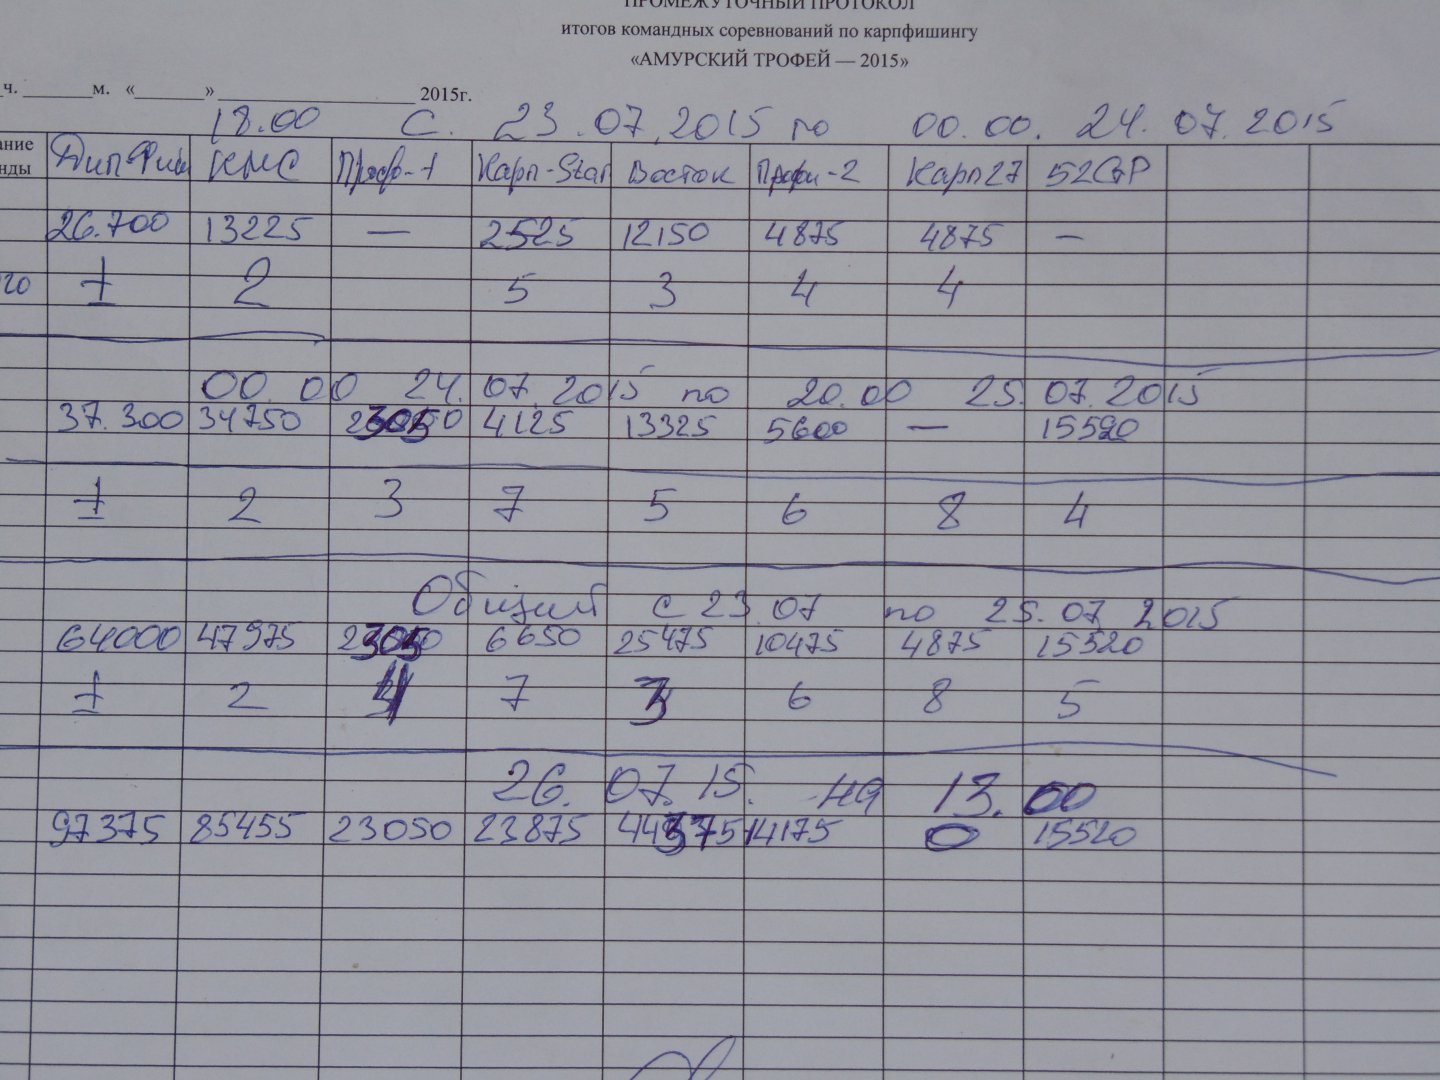 ПРОМЕЖУТОЧНЫЙ ПРОТОКОЛ
итогов командных соревнований по карпфишингу
«АМУРСКИЙ ТРОФЕЙ — 2015»
ч. _______м. «_______» ____________________ 2015г.
18.00 С. 23.07.2015 по 00.00. 24.07.2015
ание
нды
КМС Профи-1 Карп-Star Восток Профи-2 Карп27 52GP
26.700 13225 — 2525 12150 4875 4875 —
го 1 2 5 3 4 4
00.00 24.07.2015 по 20.00 25.07.2015
37.300 34750 23050 4125 13325 5600 — 15520
1 2 3 7 5 6 8 4
Общий с 23.07 по 25.07 2015
64000 47975 23050 6650 25475 10475 4875 15520
1 2 4 7 3 6 8 5
26.07.15. на 13.00
97375 85455 23050 23875 44375 14175 0 15520